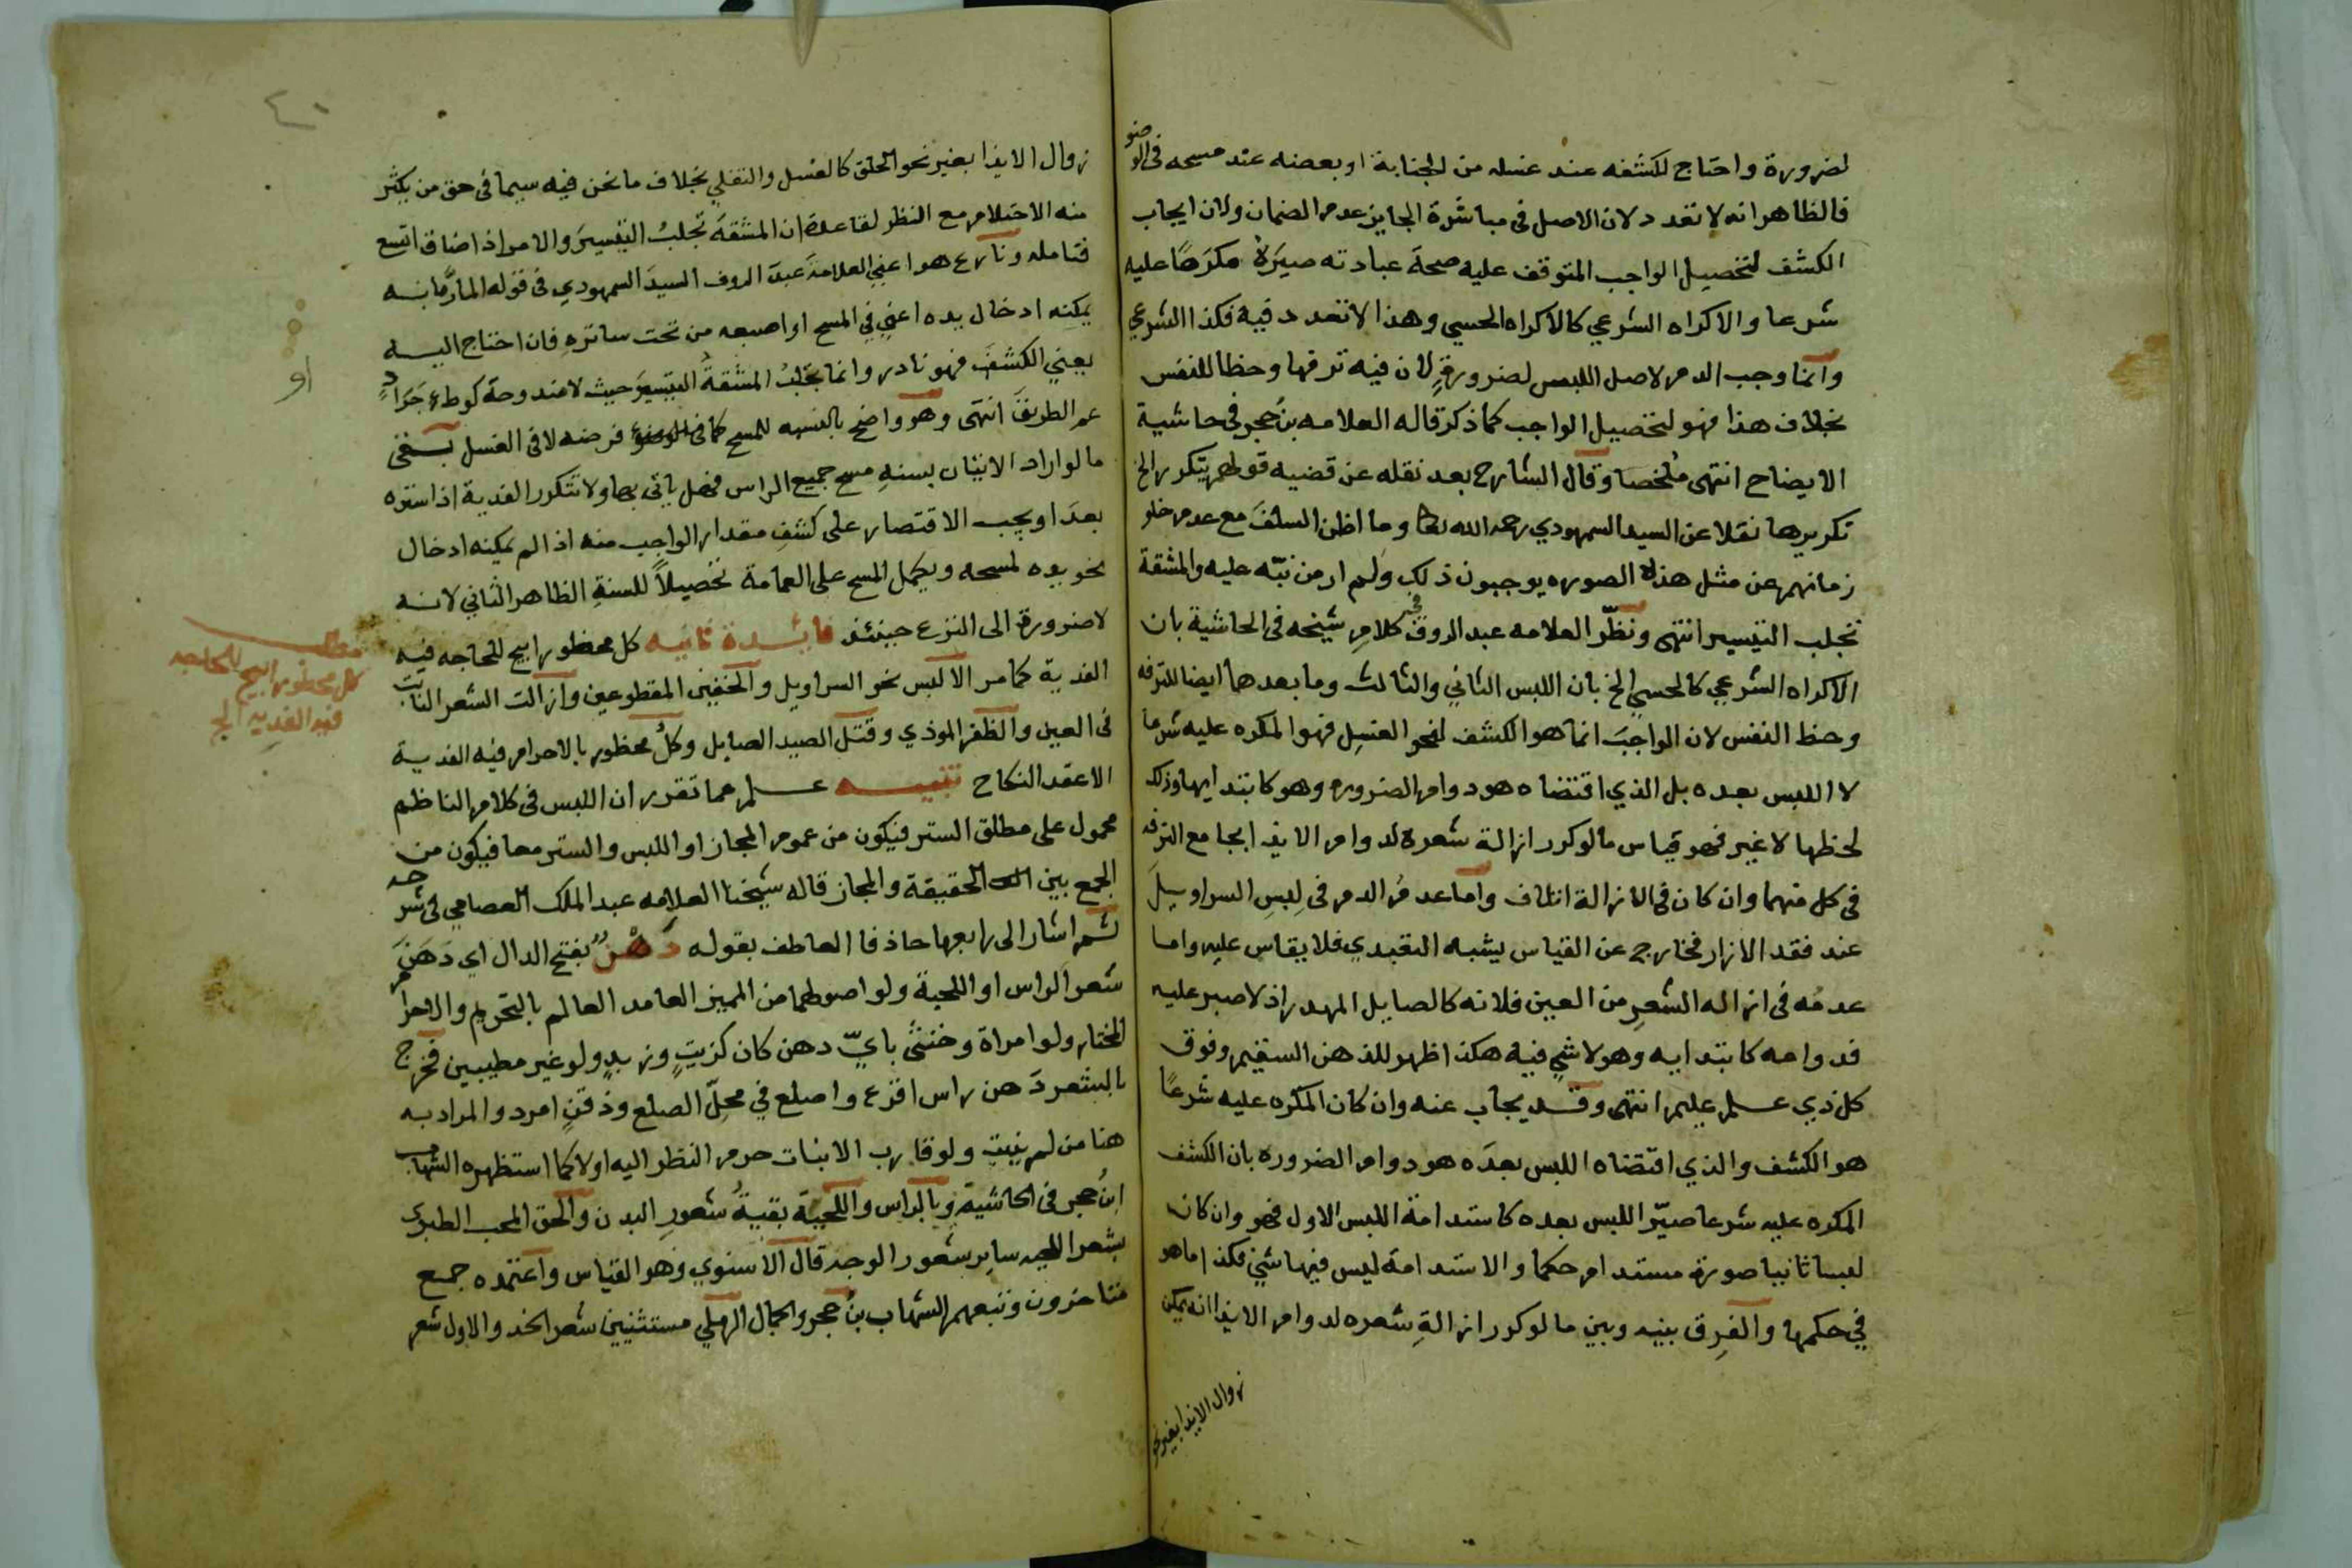 لضرورة واحتاج لكشفه عند غسله من الجنابة او بعضه عند مسحه فى الوضو
فالظاهر انه لا تعدد لان الاصل فى مباشرة الجايز عدم الضمان ولان ايجاب
الكشف لتحصيل الواجب المتوقف عليه صحة عبادته صيَرَهُ مكرَهًا عليه
شرعا والاكراه الشرعي كالاكراه الحسي وهذا لا تعدد فيه فكذا الشرعي
وانما وجب الدم لاصل اللبس لضرورةٍ لان فيه ترفها وحظا للنفس
بخلاف هذا فهو لتحصيل الواجب كما ذكر قاله العلامه بنُ حجر في حاشية
الايضاح انتهى مُلخصا وقال الشارح بعد نقله عن قضيه قولهم يتكرر الخ
تكريرها نقلا عن السيد السمهودي رحمه الله تعالى وما اظن السلفَ مع عدم خلو
زمانهم عن مثل هذه الصوره يوجبون ذلك وَلم ار من نبّه عليه والمشقة
تجلب التيسير انتهى ونظّر العلامه عبد الروف في كلامِ شيخه فى الحاشية بان
الاكراه الشرعي كالحسي الخ بان اللبس الثاني والثالث وما بعدهما ايضا للترفه
وحظ النفس لان الواجبَ انما هو الكشف لنحو الغسِل فهو المكره عليه شرعا
لا اللبس بعده بل الذي اقتضاه هو دوام الضروره وهو كابتدايها وذلك
لحظها لا غير فهو قياس ما لو كرر ازالة شعره لدوام الايذا بجامع الترفه
فى كل منهما وان كان فى الازالة اتلاف واما عدمُ الدم فى لبِسِ السراويلَ
عند فقد الازار فخارج عن القياس يشبه التعبدي فلا يقاس عليه واما
عدمُه فى ازاله الشعرِ من العين فلانه كالصايل المهدر اذ لا صبر عليه
فدوامه كابتدايه وهو لا شي فيه هكذا اظهر للذهن السقيم وفوق
كل ذي علم عليم انتهى وقد يجاب عنه وان كان المكره عليه شرعًا
هو الكشف والذي اقتضاه اللبس بعدَه هو دوام الضروره بان الكشف
المكره عليه شرعا صيّر اللبس بعده كاستدامة اللبس الاول فهو وان كان
لبسا ثانيا صورة مستدام حكما والاستدامة ليس فيها شيٌ فكذا ما هو
في حكمها والفرِق بينه وبين ما لو كرر ازالةِ شعره لدوام الايذا انه يمكن
زوال الايذا بغير نحو
٤٠
زوال الايذا بغير نحو الحلق كالغسل والتفلي بخلاف ما نحن فيه سيما فى حق من يكثر
منه الاحتلام مع النظر لقاعدة ان المشقةَ تجلبُ التيسيرَ والامر اذا ضاق اتسع
فتامله ونازع هو اعني العلامة عبدَ الروف السيدَ السمهودي فى قوله المارِّ بانه
يمكنه ادخال يده اعني في المسح او اصبعه من تحت ساترهِ فان احتاج اليه
يعني الكشفَ فهو نادر وانما تجلبُ المشقةُ التيسيرَ حيث لا مندوحة كوطء جَرَادٍ
عم الطريقَ انتهى وهو واضح بالنسبه للمسح كما فى الوضوء فرضه لا فى الغسل بقى
ما لو اراد الاتيان بسنهِ مسح جميع الراس فهل ياتى بها ولا تتكرر الفدية اذا ستره
بعدَ او يجب الاقتصار على كشفِ مقدار الواجب منه اذا لم يمكنه ادخال
نحو يده لمسحه ويكمل المسح على العمامة تحصيلاً للسنةِ الظاهر الثاني لانه
لا ضرورة الى النزع حينئذ فائدة ثانيه كل محظور ابيح للحاجه فيه
الفدية كما مر الا لبس نحو السراويل والخفين المقطوعين وازالت الشعر النابت
فى العين والظفر الموذي وقتل الصيد الصايل وكلُ محظور بالاحرام فيه الفدية
الا عقد النكاح تنبيه علم مما تقرر ان اللبس فى كلام الناظم
محمول على مطلق الستر فيكون من عموم المجاز او اللبس والستر معا فيكون من
الجمع بين الحقيقة والمجاز قاله شيخنا العلامه عبد الملك العصامي فى شرحه
ثم اشار الى رابعها حاذفا العاطف بقوله دَهْنُ بفتح الدال اي دَهَنَ
شعر الراس او اللحية ولو اصولهما من المميز العامد العالم بالتحريم والاحرام
المختار ولو امراة وخنثى بايِّ دهن كان كزيتٍ وزبدٍ ولو غير مطيبين فخرج
بالشعر دَهن راس اقرع واصلع في محلِّ الصلع وذقنِ امرد والمراد به
هنا من لم ينبت ولو قارب الانبات حرم النظر اليه اولا كما استظهره الشهاب
ابنُ حجر فى الحاشية وبالراس واللحية بقيةُ شعورِ البدن والحق المحب الطبرى
بشعر اللحيه ساير شعور الوجه قال الاسنوي وهو القياس واعتمده جمع
متاخرون وتبعهم الشهاب بنُ حجر والجمال الرملي مستثنيين شعر الخد والاول شعر
او
مطلب
كل محظور ابيح للحاجه
فيه الفديه الخ